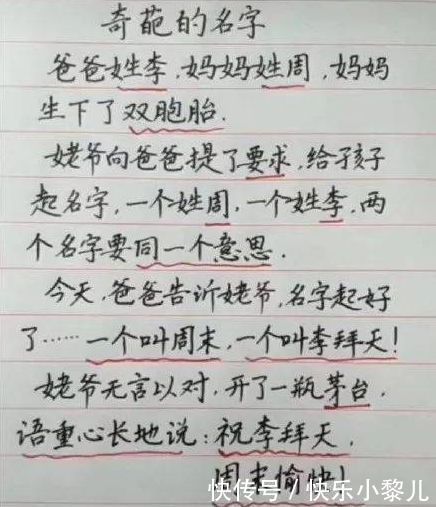 奇葩的名字
爸爸姓李,妈妈姓周,妈妈
生下了双胞胎.
姥爷向爸爸提了要求,给孩子
起名字,一个姓周,一个姓李,两
个名字要同一个意思.
今天,爸爸告诉姥爷,名字起好
了……一个叫周末,一个叫李拜天!
姥爷无言以对,开了一瓶茅台,
语重心长地说:祝李拜天,
周末愉快!
快传号/快乐小黎儿